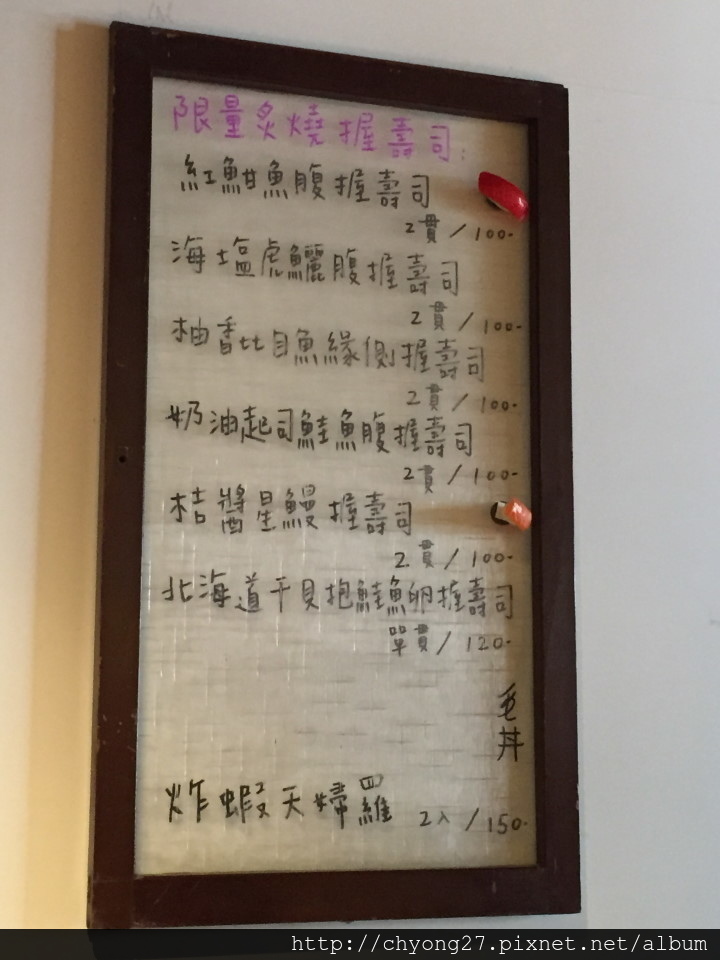 限量炙燒握壽司:
紅魽魚腹握壽司
2貫/100.
海塩虎鱺腹握壽司
2貫/100.
柚香比目魚緣側握壽司
2貫/100.
奶油起司鮭魚腹握壽司
2貫/100.
桔醬星鰻握壽司
2貫/100.
北海道干貝抱鮭魚卵握壽司
單貫/120.
毛丼
炸蝦天婦羅 2入/150.
http://chyong27.pixnet.net/album